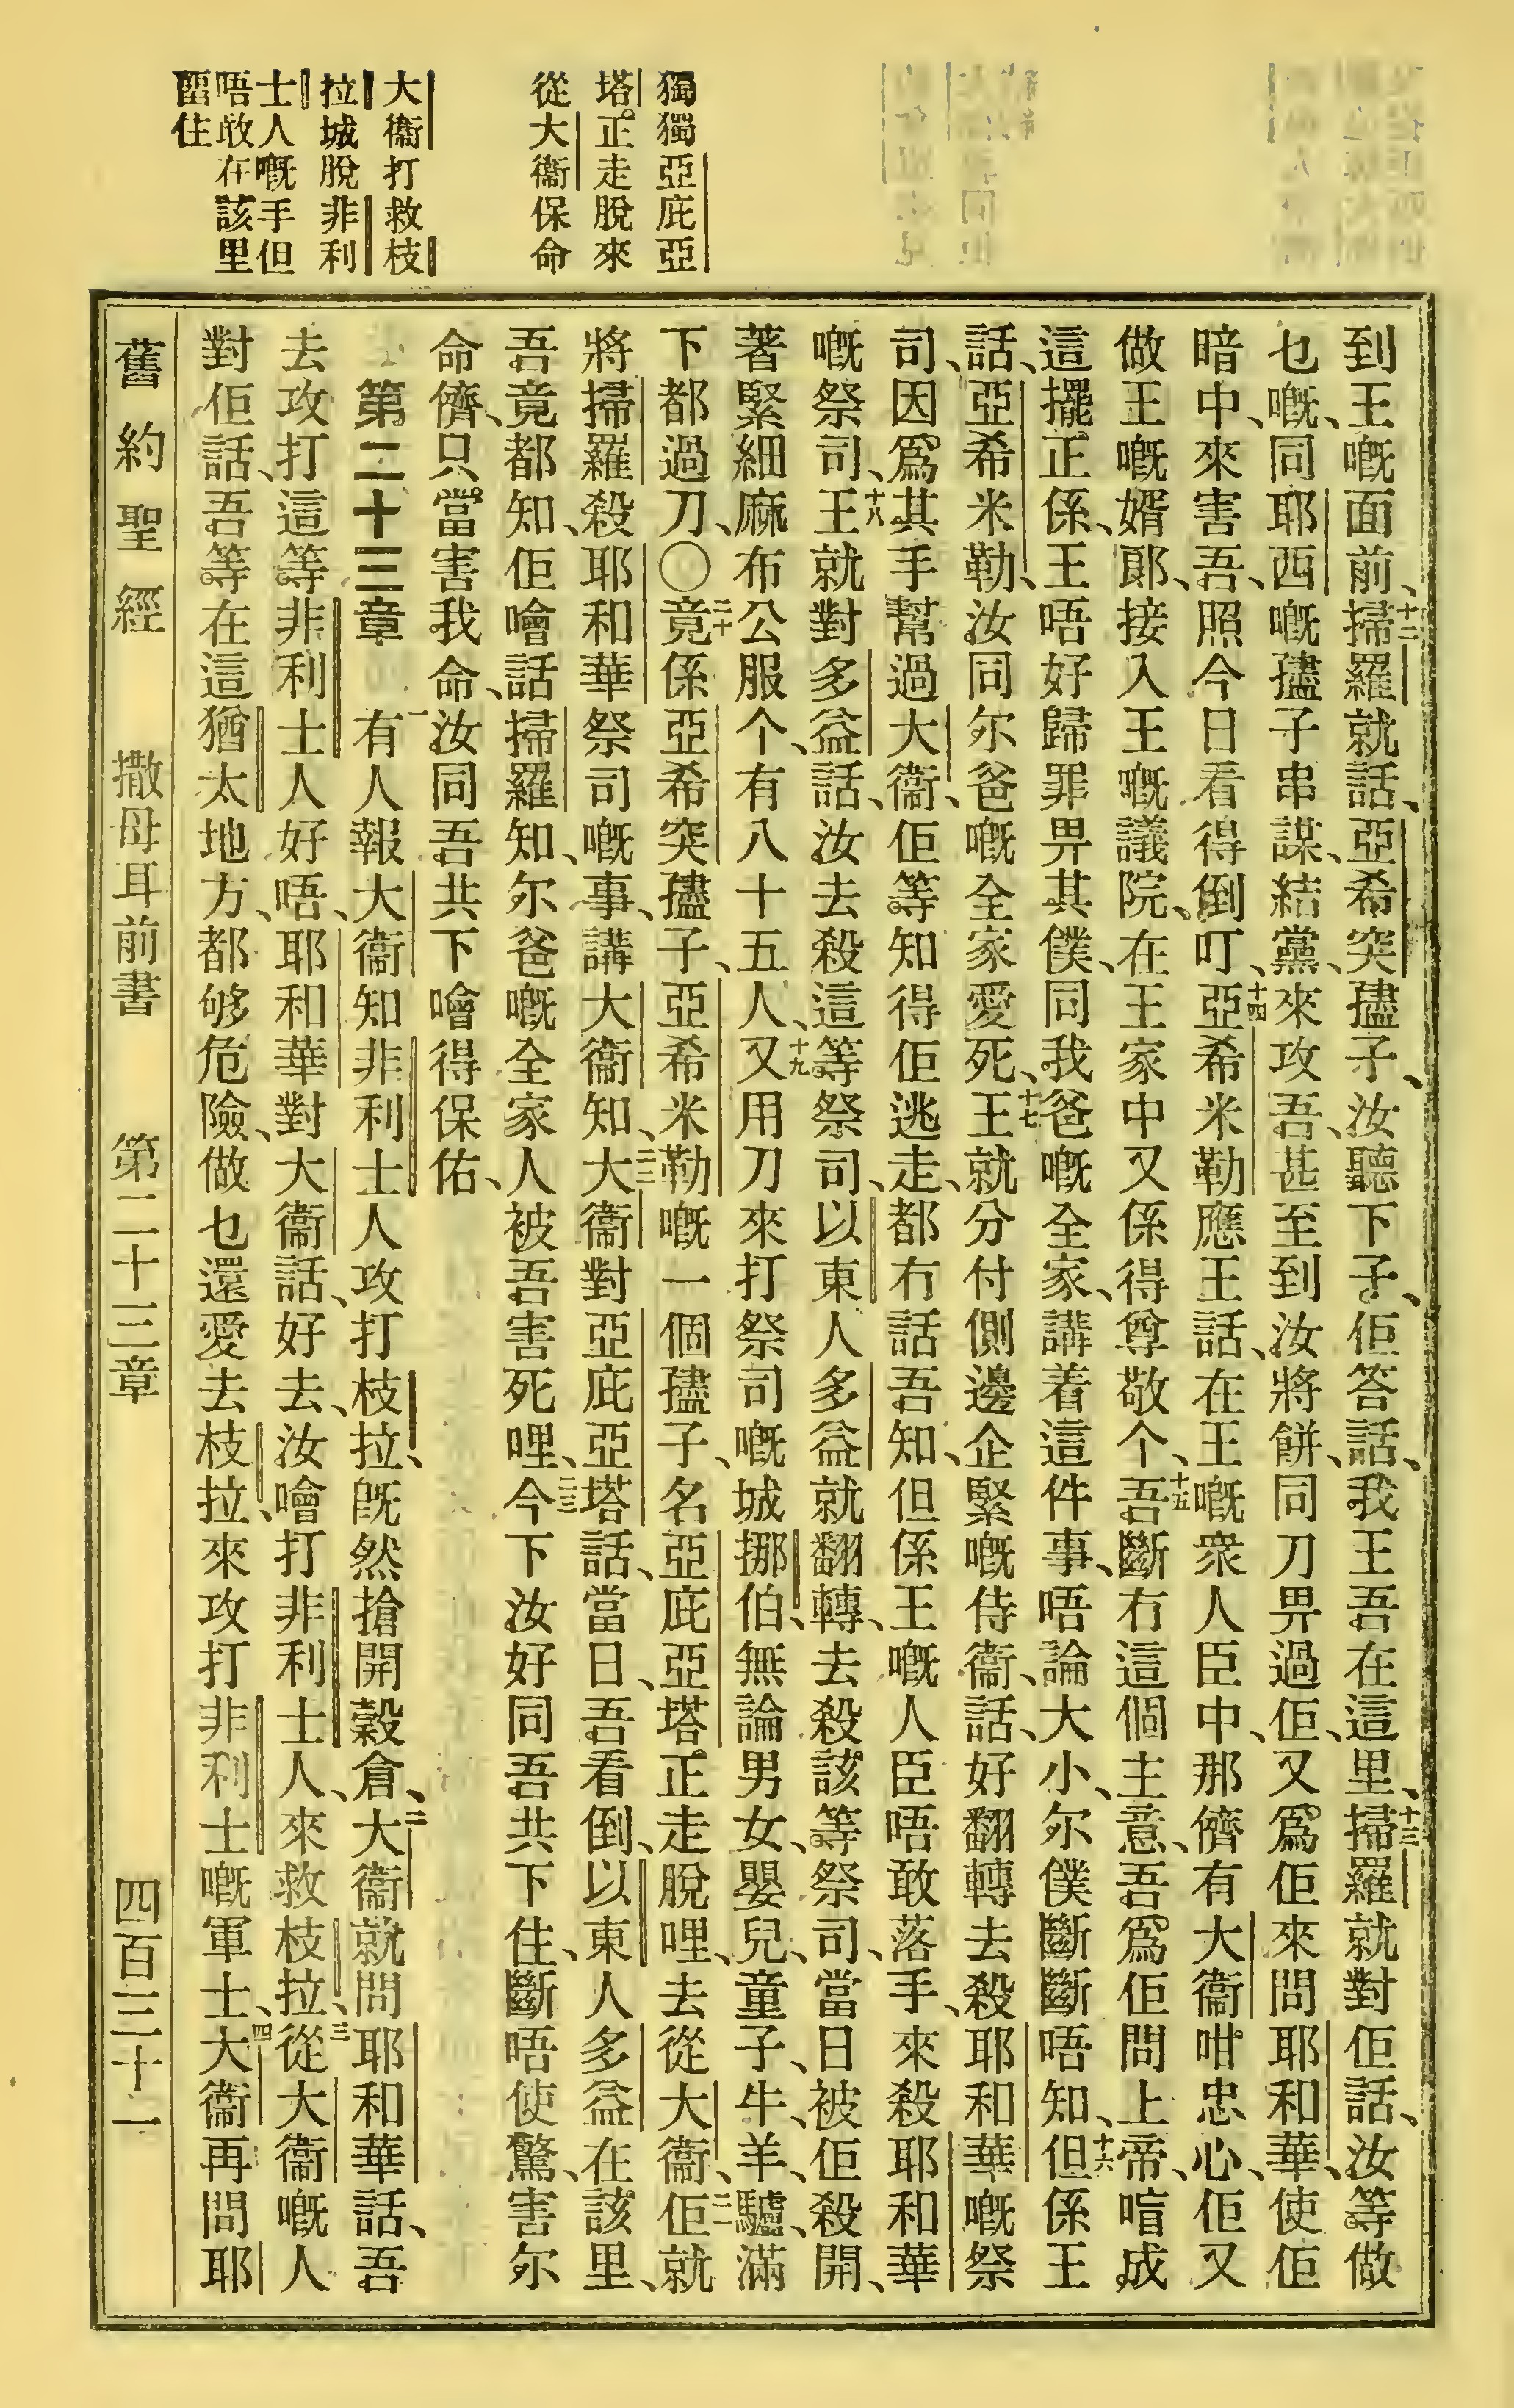 獨獨亞庇亞
塔正走脫來
從大衞保命
大衞打救枝
拉城脫非利
士人嘅手但
唔敢在該里
畱住
到王嘅面前、十二掃羅就話、亞希突孻子、汝聽下子、佢答話、我王吾在這里、十三掃羅就對佢話、汝等做
乜嘅、同耶西嘅孻子串謀、結黨、來攻吾、甚至到汝將餅、同刀畀過佢、又爲佢來問耶和華、使佢
暗中、來害吾、照今日看得倒叮、十四亞希米勒應王話、在王嘅衆人臣中、那儕有大衞咁忠心、佢又
做王嘅婿郞、接入王嘅議院、在王家中又係得尊敬个、十五吾斷冇這個主意、吾爲佢問上帝、唁成
這擺正係、王唔好歸罪畀其僕、同我爸嘅全家、講着這件事、唔論大小、尔僕斷斷唔知、十六但係王
話、亞希米勒、汝同尔爸嘅全家愛死、十七王就分付側邊企緊嘅侍衞、話、好翻轉去殺耶和華嘅祭
司、因爲其手幫過大衞、佢等知得佢逃走、都冇話吾知、但係王嘅人臣唔敢落手、來殺耶和華
嘅祭司、十八王就對多益話、汝去殺這等祭司、以東人多益就翻轉、去殺該等祭司、當日被佢殺開、
著緊細麻布公服个、有八十五人、十九又用刀來打祭司嘅城挪伯、無論男女、嬰兒、童子、牛、羊、驢、滿
下都過刀、〇二十竟係亞希突孻子、亞希米勒嘅一個孻子、名亞庇亞塔正走脫哩、去從大衞、二一佢就
將掃羅殺耶和華祭司嘅事、講大衞知、二二大衞對亞庇亞塔話、當日、吾看倒、以東人多益在該里、
吾竟都知、佢噲話掃羅知、尔爸嘅全家人被吾害死哩、二三今下汝好同吾共下住、斷唔使驚、害尔
命儕、只當害我命、汝同吾共下噲得保佑、
第二十三章 一有人報大衞知非利士人攻打枝拉、旣然搶開穀倉、二大衞就問耶和華話、吾
去攻打這等非利士人好唔、耶和華對大衞話、好去、汝噲打非利士人、來救枝拉、三從大衞嘅人
對佢話、吾等在這猶太地方、都够危險、做乜還愛去枝拉、來攻打非利士嘅軍士、四大衞再問耶
舊約聖經 撒母耳前書 第二十三章 四百三十一